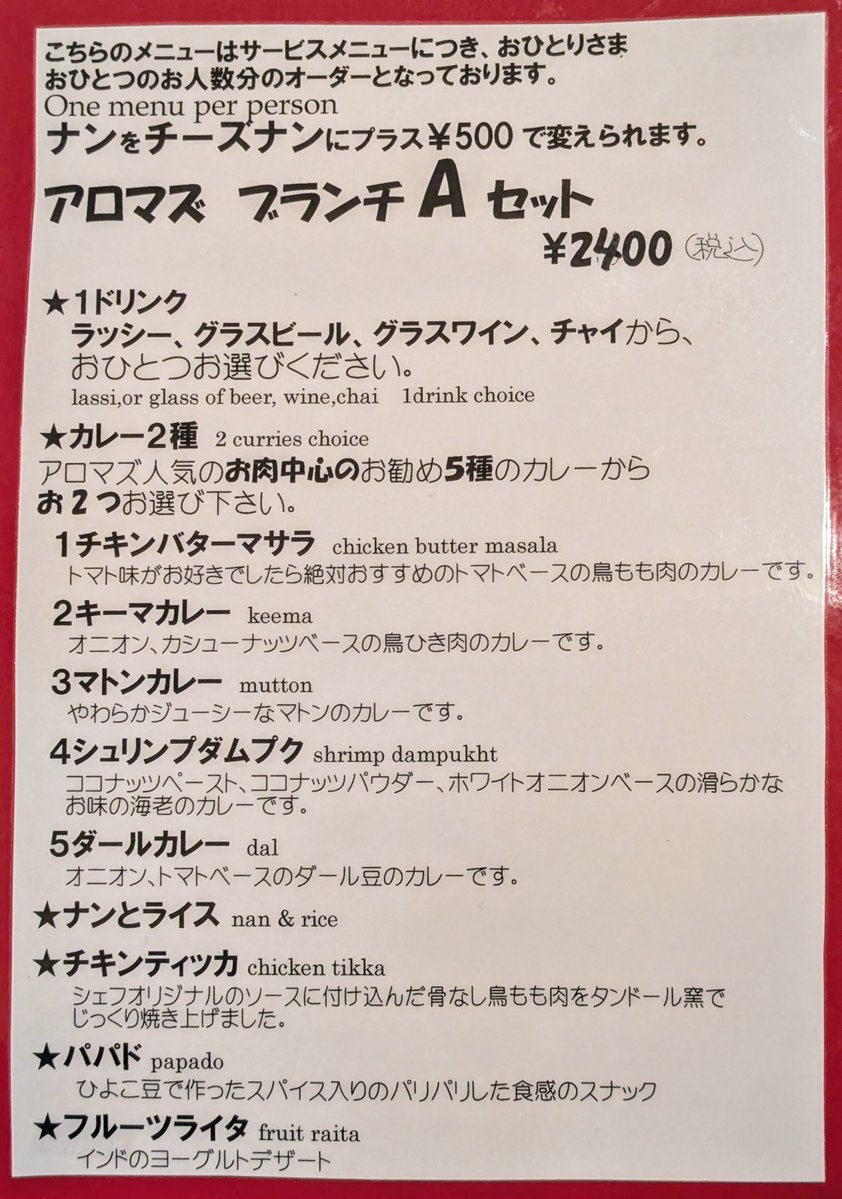 こちらのメニューはサービスメニューにつき、おひとりさま
おひとつのお人数分のオーダーとなっております。
One menu per person
ナンをチーズナンにプラス¥500で変えられます。
アロマズ ブランチ A セット
¥2400(税込)
★1ドリンク
ラッシー、グラスビール、グラスワイン、チャイから、
おひとつお選びください。
lassi,or glass of beer, wine,chai 1drink choice
★カレー2種 2 curries choice
アロマズ人気のお肉中心のお勧め5種のカレーから
お2つお選び下さい。
1チキンバターマサラ chicken butter masala
トマト味がお好きでしたら絶対おすすめのトマトベースの鳥もも肉のカレーです。
2キーマカレー keema
オニオン、カシューナッツベースの鳥ひき肉のカレーです。
3マトンカレー mutton
やわらかジューシーなマトンのカレーです。
4シュリンプダムプク shrimp dampukht
ココナッツペースト、ココナッツパウダー、ホワイトオニオンベースの滑らかな
お味の海老のカレーです。
5ダールカレー dal
オニオン、トマトベースのダール豆のカレーです。
★ナンとライス nan & rice
★チキンティツカ chicken tikka
シェフオリジナルのソースに付け込んだ骨なし鳥もも肉をタンドール窯で
じっくり焼き上げました。
★パパド papado
ひよこ豆で作ったスパイス入りのパリパリした食感のスナック
★フルーツライタ fruit raita
インドのヨーグルトデザート